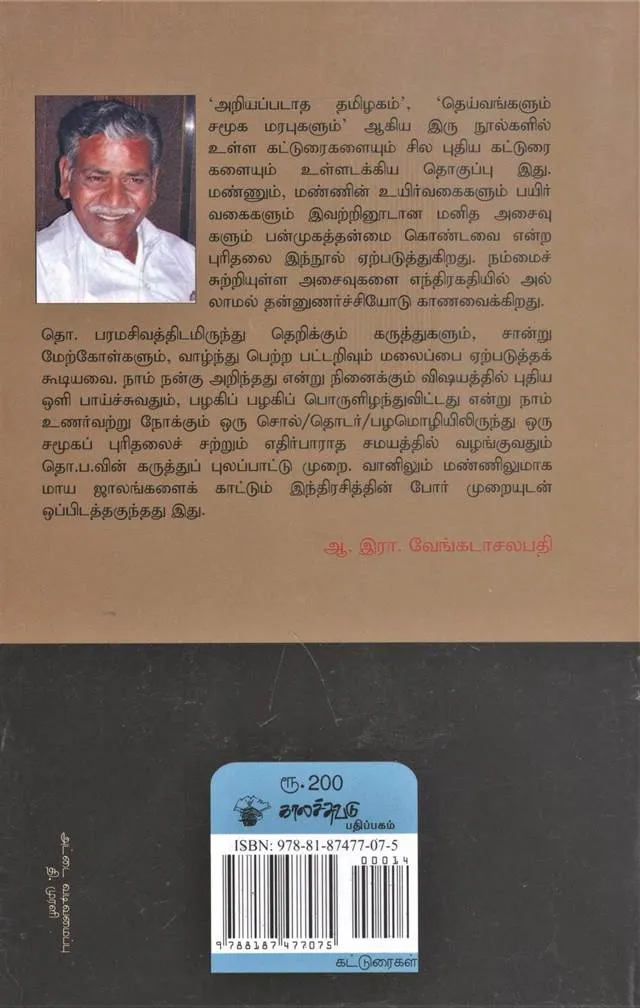 ‘அறியப்படாத தமிழகம்’, ‘தெய்வங்களும்
சமூக மரபுகளும்’ ஆகிய இரு நூல்களில்
உள்ள கட்டுரைகளையும் சில புதிய கட்டுரை
களையும் உள்ளடக்கிய தொகுப்பு இது.
மண்ணும், மண்ணின் உயிர்வகைகளும் பயிர்
வகைகளும் இவற்றினூடான மனித அசைவு
களும் பன்முகத்தன்மை கொண்டவை என்ற
புரிதலை இந்நூல் ஏற்படுத்துகிறது. நம்மைச்
சுற்றியுள்ள அசைவுகளை எந்திரகதியில் அல்
லாமல் தன்னுணர்ச்சியோடு காணவைக்கிறது.
தொ. பரமசிவத்திடமிருந்து தெறிக்கும் கருத்துகளும், சான்று
மேற்கோள்களும், வாழ்ந்து பெற்ற பட்டறிவும் மலைப்பை ஏற்படுத்தக்
கூடியவை. நாம் நன்கு அறிந்தது என்று நினைக்கும் விஷயத்தில் புதிய
ஒளி பாய்ச்சுவதும், பழகிப் பழகிப் பொருளிழந்துவிட்டது என்று நாம்
உணர்வற்று நோக்கும் ஒரு சொல்/தொடர்/பழமொழியிலிருந்து ஒரு
சமூகப் புரிதலைச் சற்றும் எதிர்பாராத சமயத்தில் வழங்குவதும்
தொ.ப.வின் கருத்துப் புலப்பாட்டு முறை. வானிலும் மண்ணிலுமாக
மாய ஜாலங்களைக் காட்டும் இந்திரசித்தின் போர் முறையுடன்
ஒப்பிடத்தகுந்தது இது.
ஆ. இரா. வேங்கடாசலபதி
ரூ.200
காலச்சுவடு
பதிப்பகம்
ISBN: 978-81-87477-07-5
00014
9 788187 477075
கட்டுரைகள்
அட்டை வடிவமைப்பு
தி. முரளி